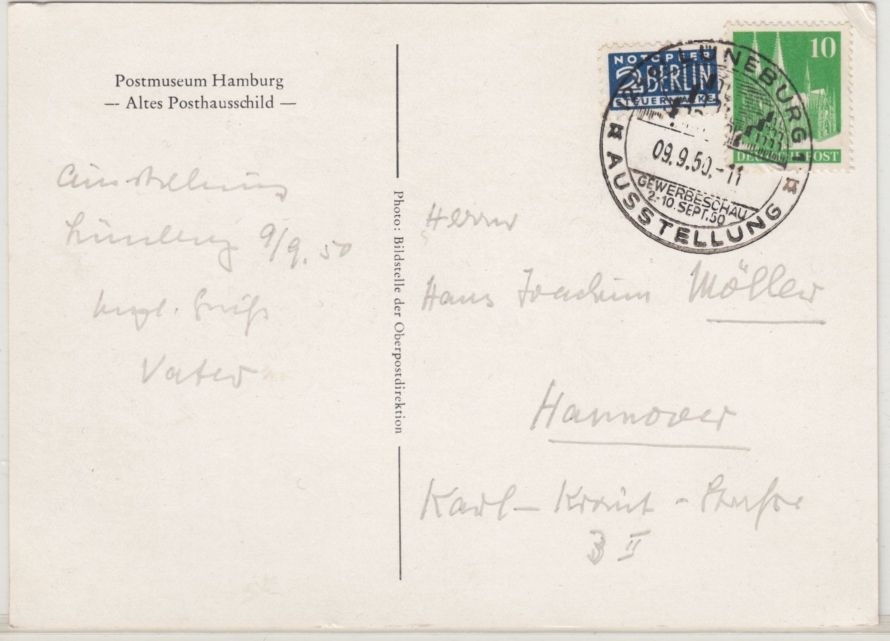 Postmuseum Hamburg
— Altes Posthausschild —
Ausstellung
Lüneburg 9/9. 50
herzl. Grüße
Vater
Photo: Bildstelle der Oberpostdirektion
NOTOPFER
2 BERLIN
STEUERMARKE
10
DEUTSCHE POST
LÜNEBURG
09.9.50.-11
GEWERBESCHAU
2.-10. SEPT. 50
AUSSTELLUNG
Herrn
Hans Joachim Möller
Hannover
Karl-Kraut-Straße
3 II